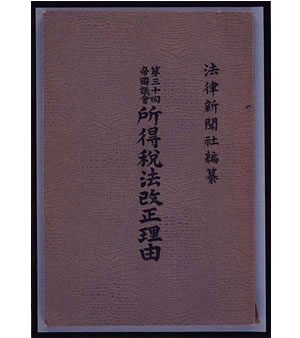 法律新聞社編纂
第三十回
帝國議會
所得税法改正理由